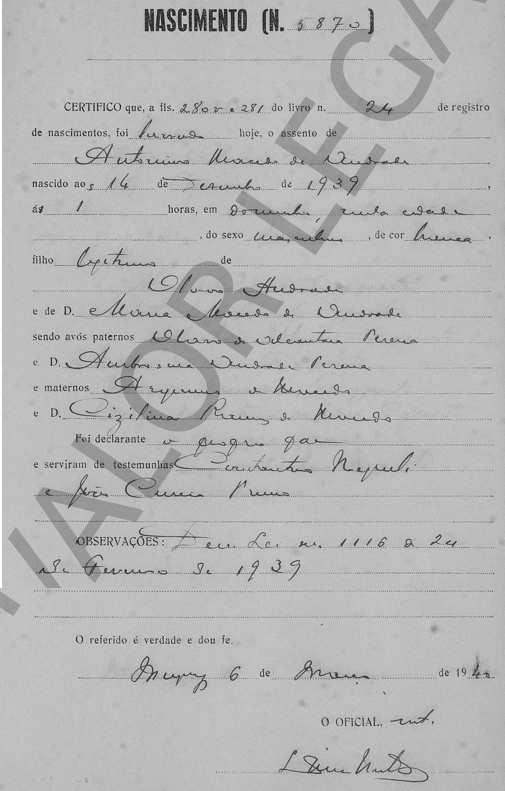 NASCIMENTO (N. 5870)
CERTIFICO que, a fls. 280v e 281 do livro n. 24 de registro
de nascimentos, foi lavrado hoje, o assento de
Antonino Macedo de Andrade
nascido aos 14 de Dezembro de 1939,
ás 1 horas, em domicilio, nesta cidade
, do sexo masculino, de cor branca,
filho legitimo de
Olavo Andrade
e de D. Maria Macedo de Andrade
sendo avós paternos Olavo de Alcantara Pereira
e D. Ambrosina Andrade Pereira
e maternos de Macedo
e D. de Macedo
Foi declarante o proprio pae
e serviram de testemunhas
e João
OBSERVAÇÕES: Dec. Lei nr. 1116 de 24
de Fevereiro de 1939
O referido é verdade e dou fe.
6 de Março de 1940
O OFICIAL, int.
VALOR LEGAL